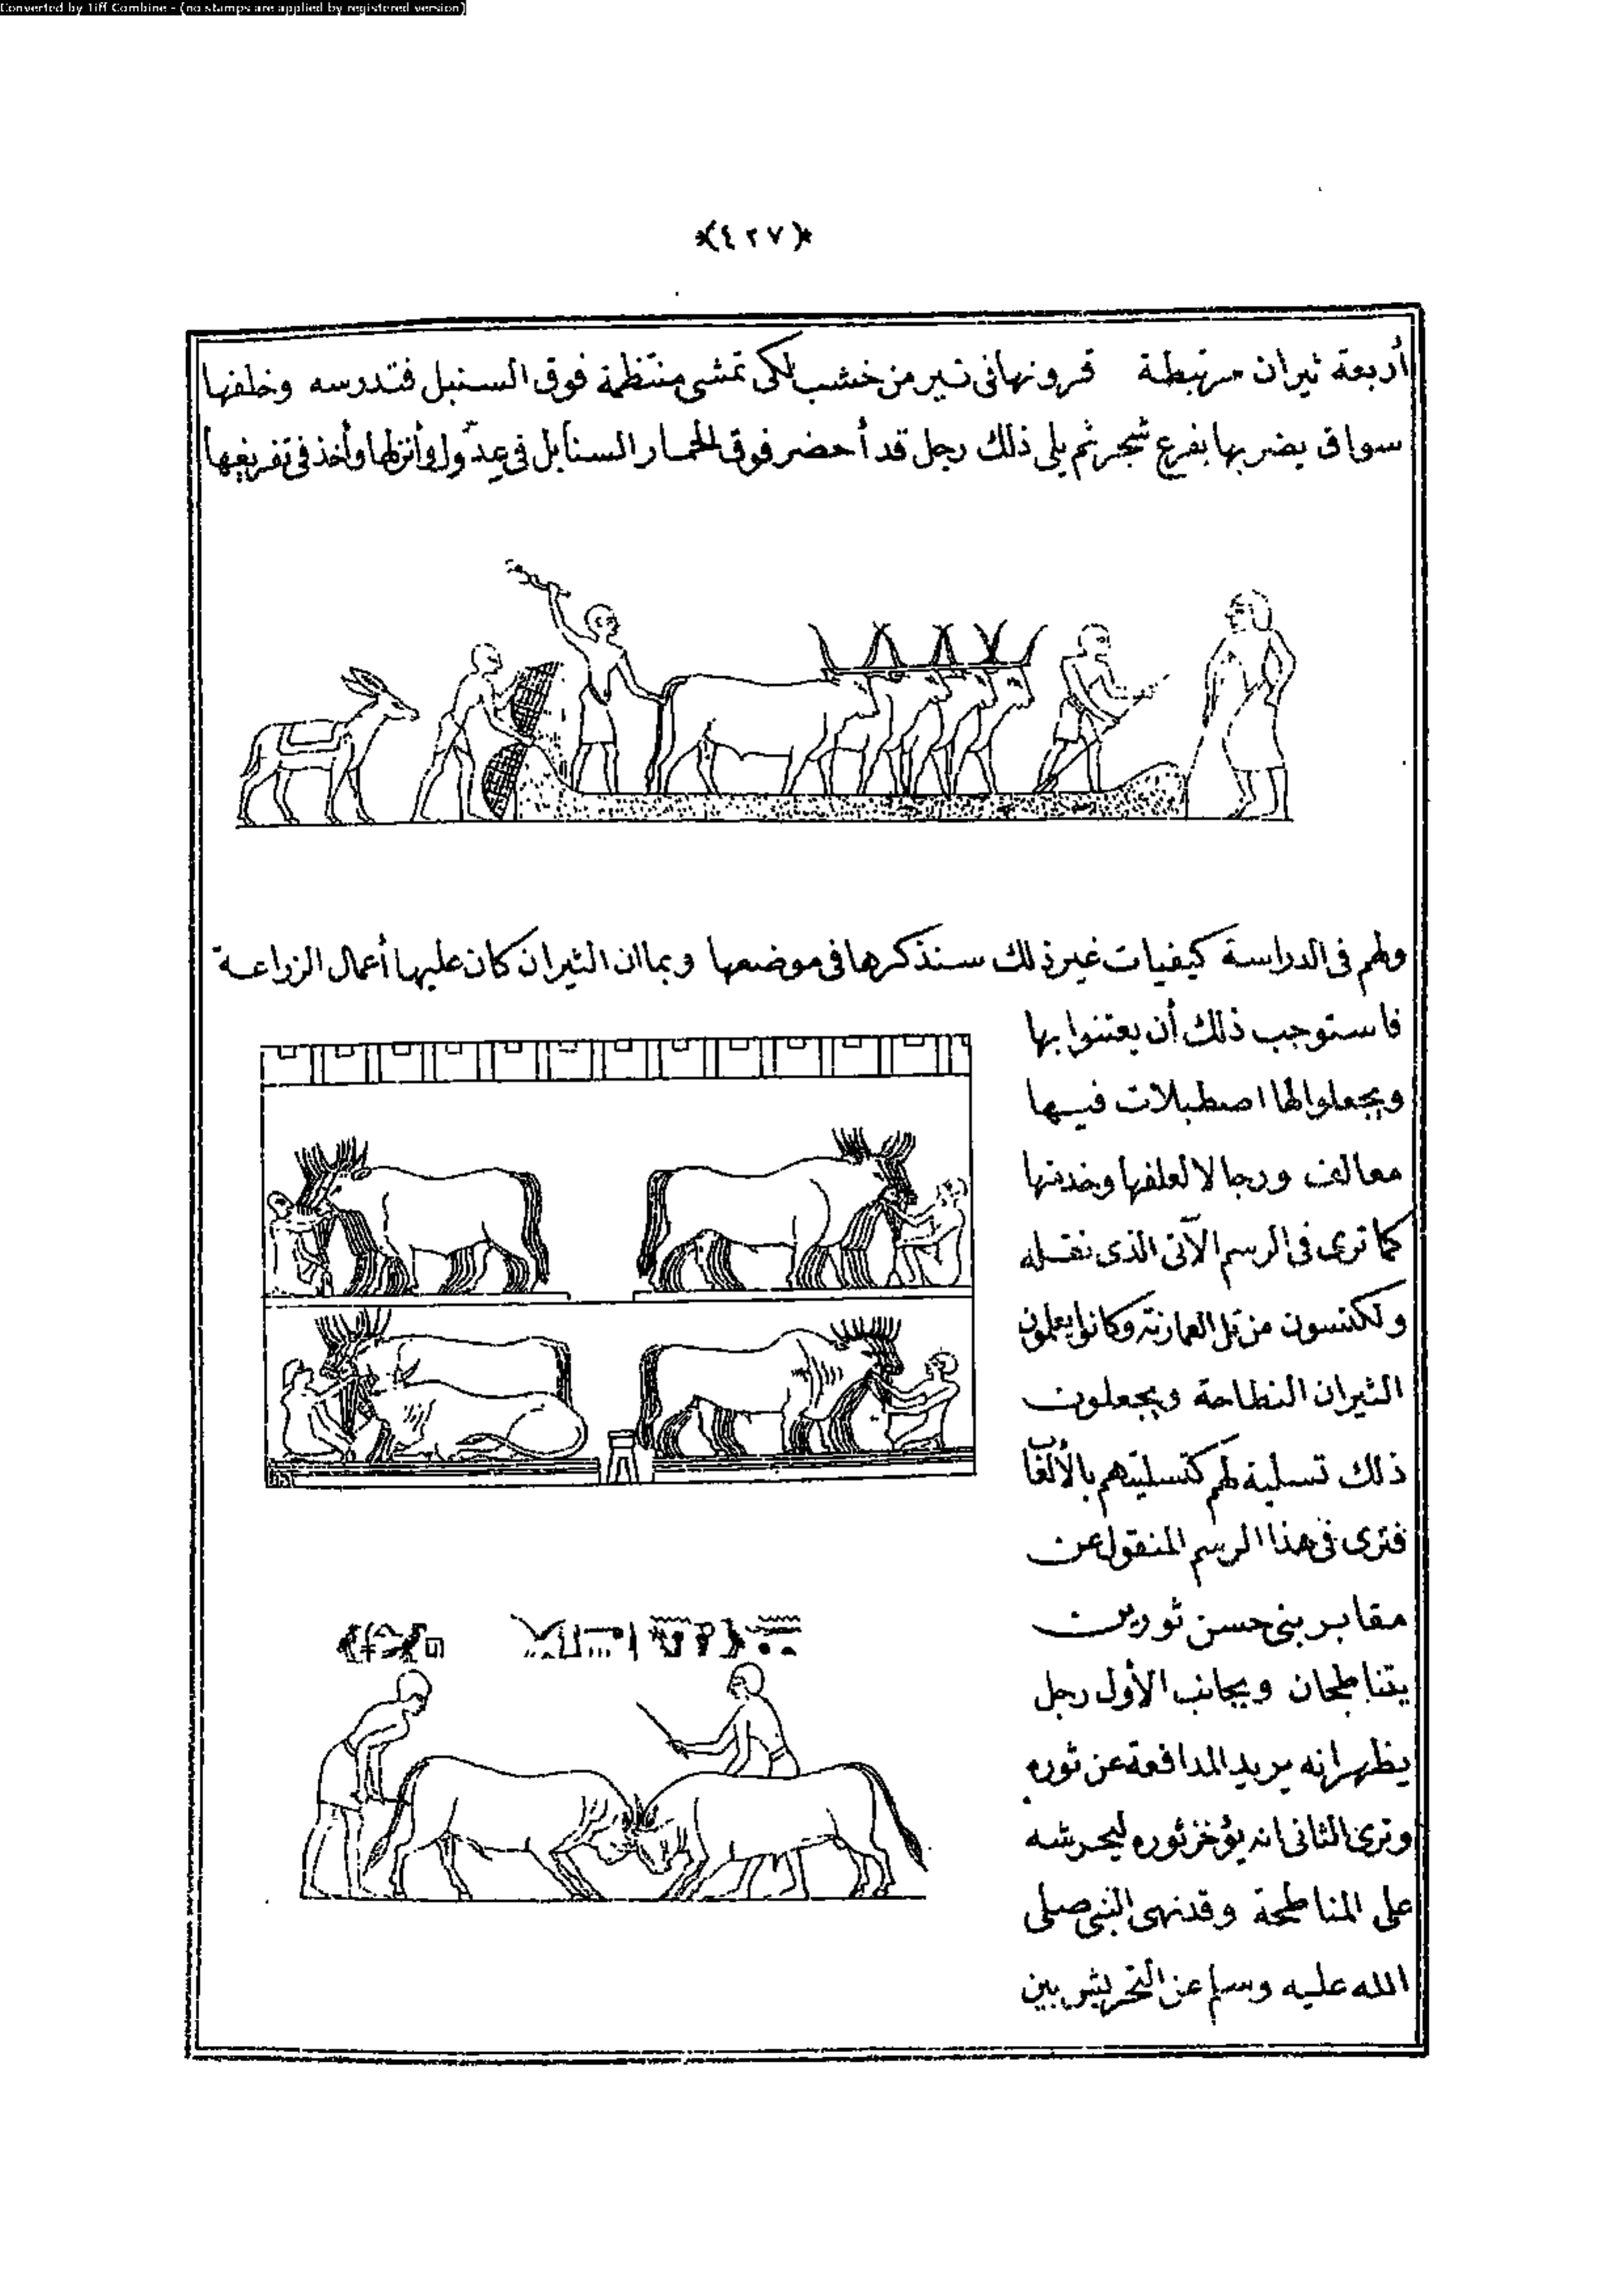 Converted by Tiff Combine - (no stamps are applied by registered version)
*(٤٢٧)*
أربعة ثيران مرتبطة قرونها فى نير من خشب لكى تمشى منتظمة فوق السنبل فتدرسه وخلفها
سواق يضربها بفرع شجر ثم يلى ذلك رجل قد أحضر فوق الحمار السنابل فى عدول وأنزلها وأخذ فى تفريغها
ولهم فى الدراسة كيفيات غير ذلك سنذكرها فى موضعها وبما ان الثيران كان عليها أعمال الزراعة
فاستوجب ذلك أن يعتنوا بها
ويجعلوا لها اصطبلات فيها
معالف ورجالا لعلفها وخدمتها
كما ترى فى الرسم الآتى الذى نقله
ولكنسون من تل العمارنة وكانوا يعلمون
الثيران النطاحة ويجعلون
ذلك تسلية لهم كتسليتهم بالألعاب
فترى فى هذا الرسم المنقول عن
مقابر بنى حسن ثورين
يتناطحان وبجانب الأول رجل
يظهر انه يريد المدافعة عن ثوره
وترى الثانى انه ثوره ليحرشه
على المناطحة وقد نهى النبى صلى
الله عليه وسلم عن التحريش بين